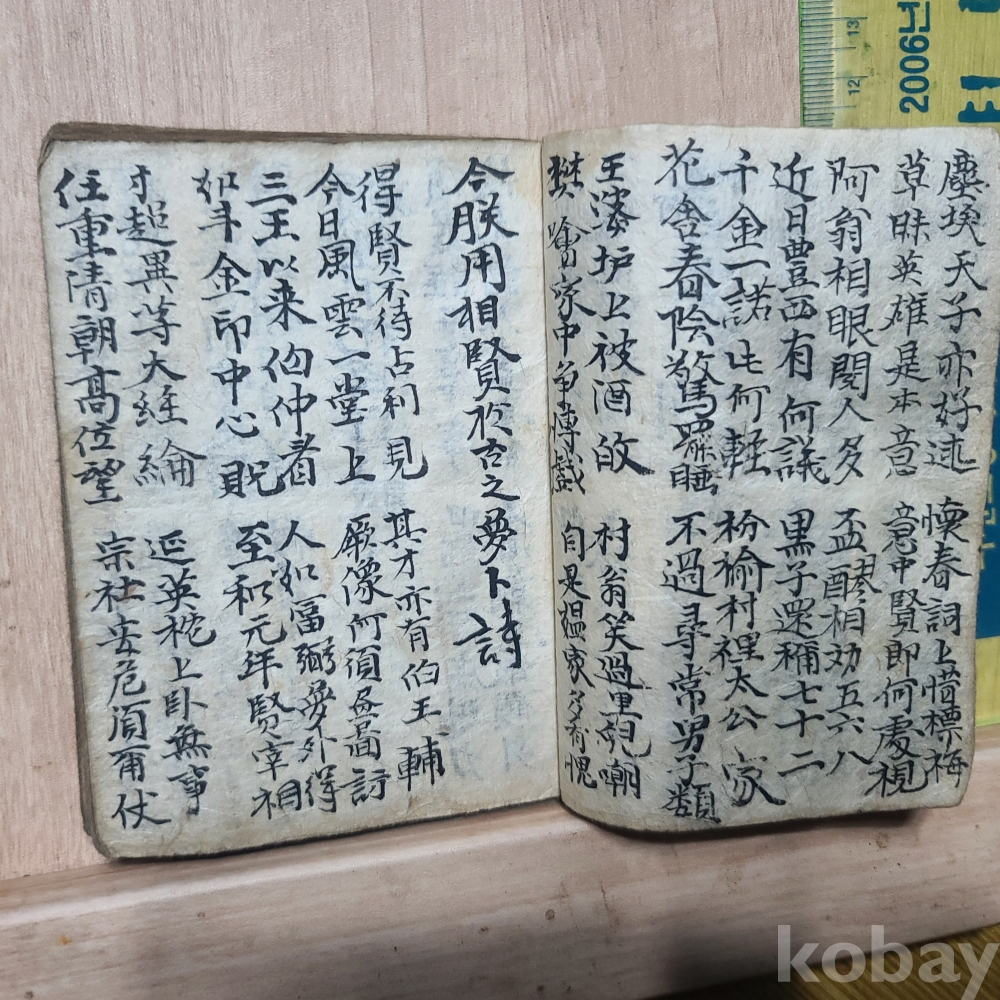 塵埃天子亦好逑 懷春詞上惜標梅
草昧英雄是本意 意中賢郎何處視
阿翁相眼閱人多 盃醪相劝五六八
近日豊西有何議 黒子還稱七十二
千金一諾此何輕 枌榆村裡太公家
花舍春陰驚罷睡 不過尋常男子類
王婆垆上被酒故 村翁笑過里兒嘲
樊噲家中爭博戱 自是媪家多有愧
今朕用相賢於古之夢卜詩
得賢不待占利見 其才亦有伯王輔
今日風雲一堂上 厥像何須盡啚訪
三王以来伯仲看 人如富弼夢外得
如斗金印中心貺 至和元年賢宰相
才超異等大経綸 延英枕上卧無事
任重清朝高位望 宗社安危須爾仗
2006년
13
12
kobay